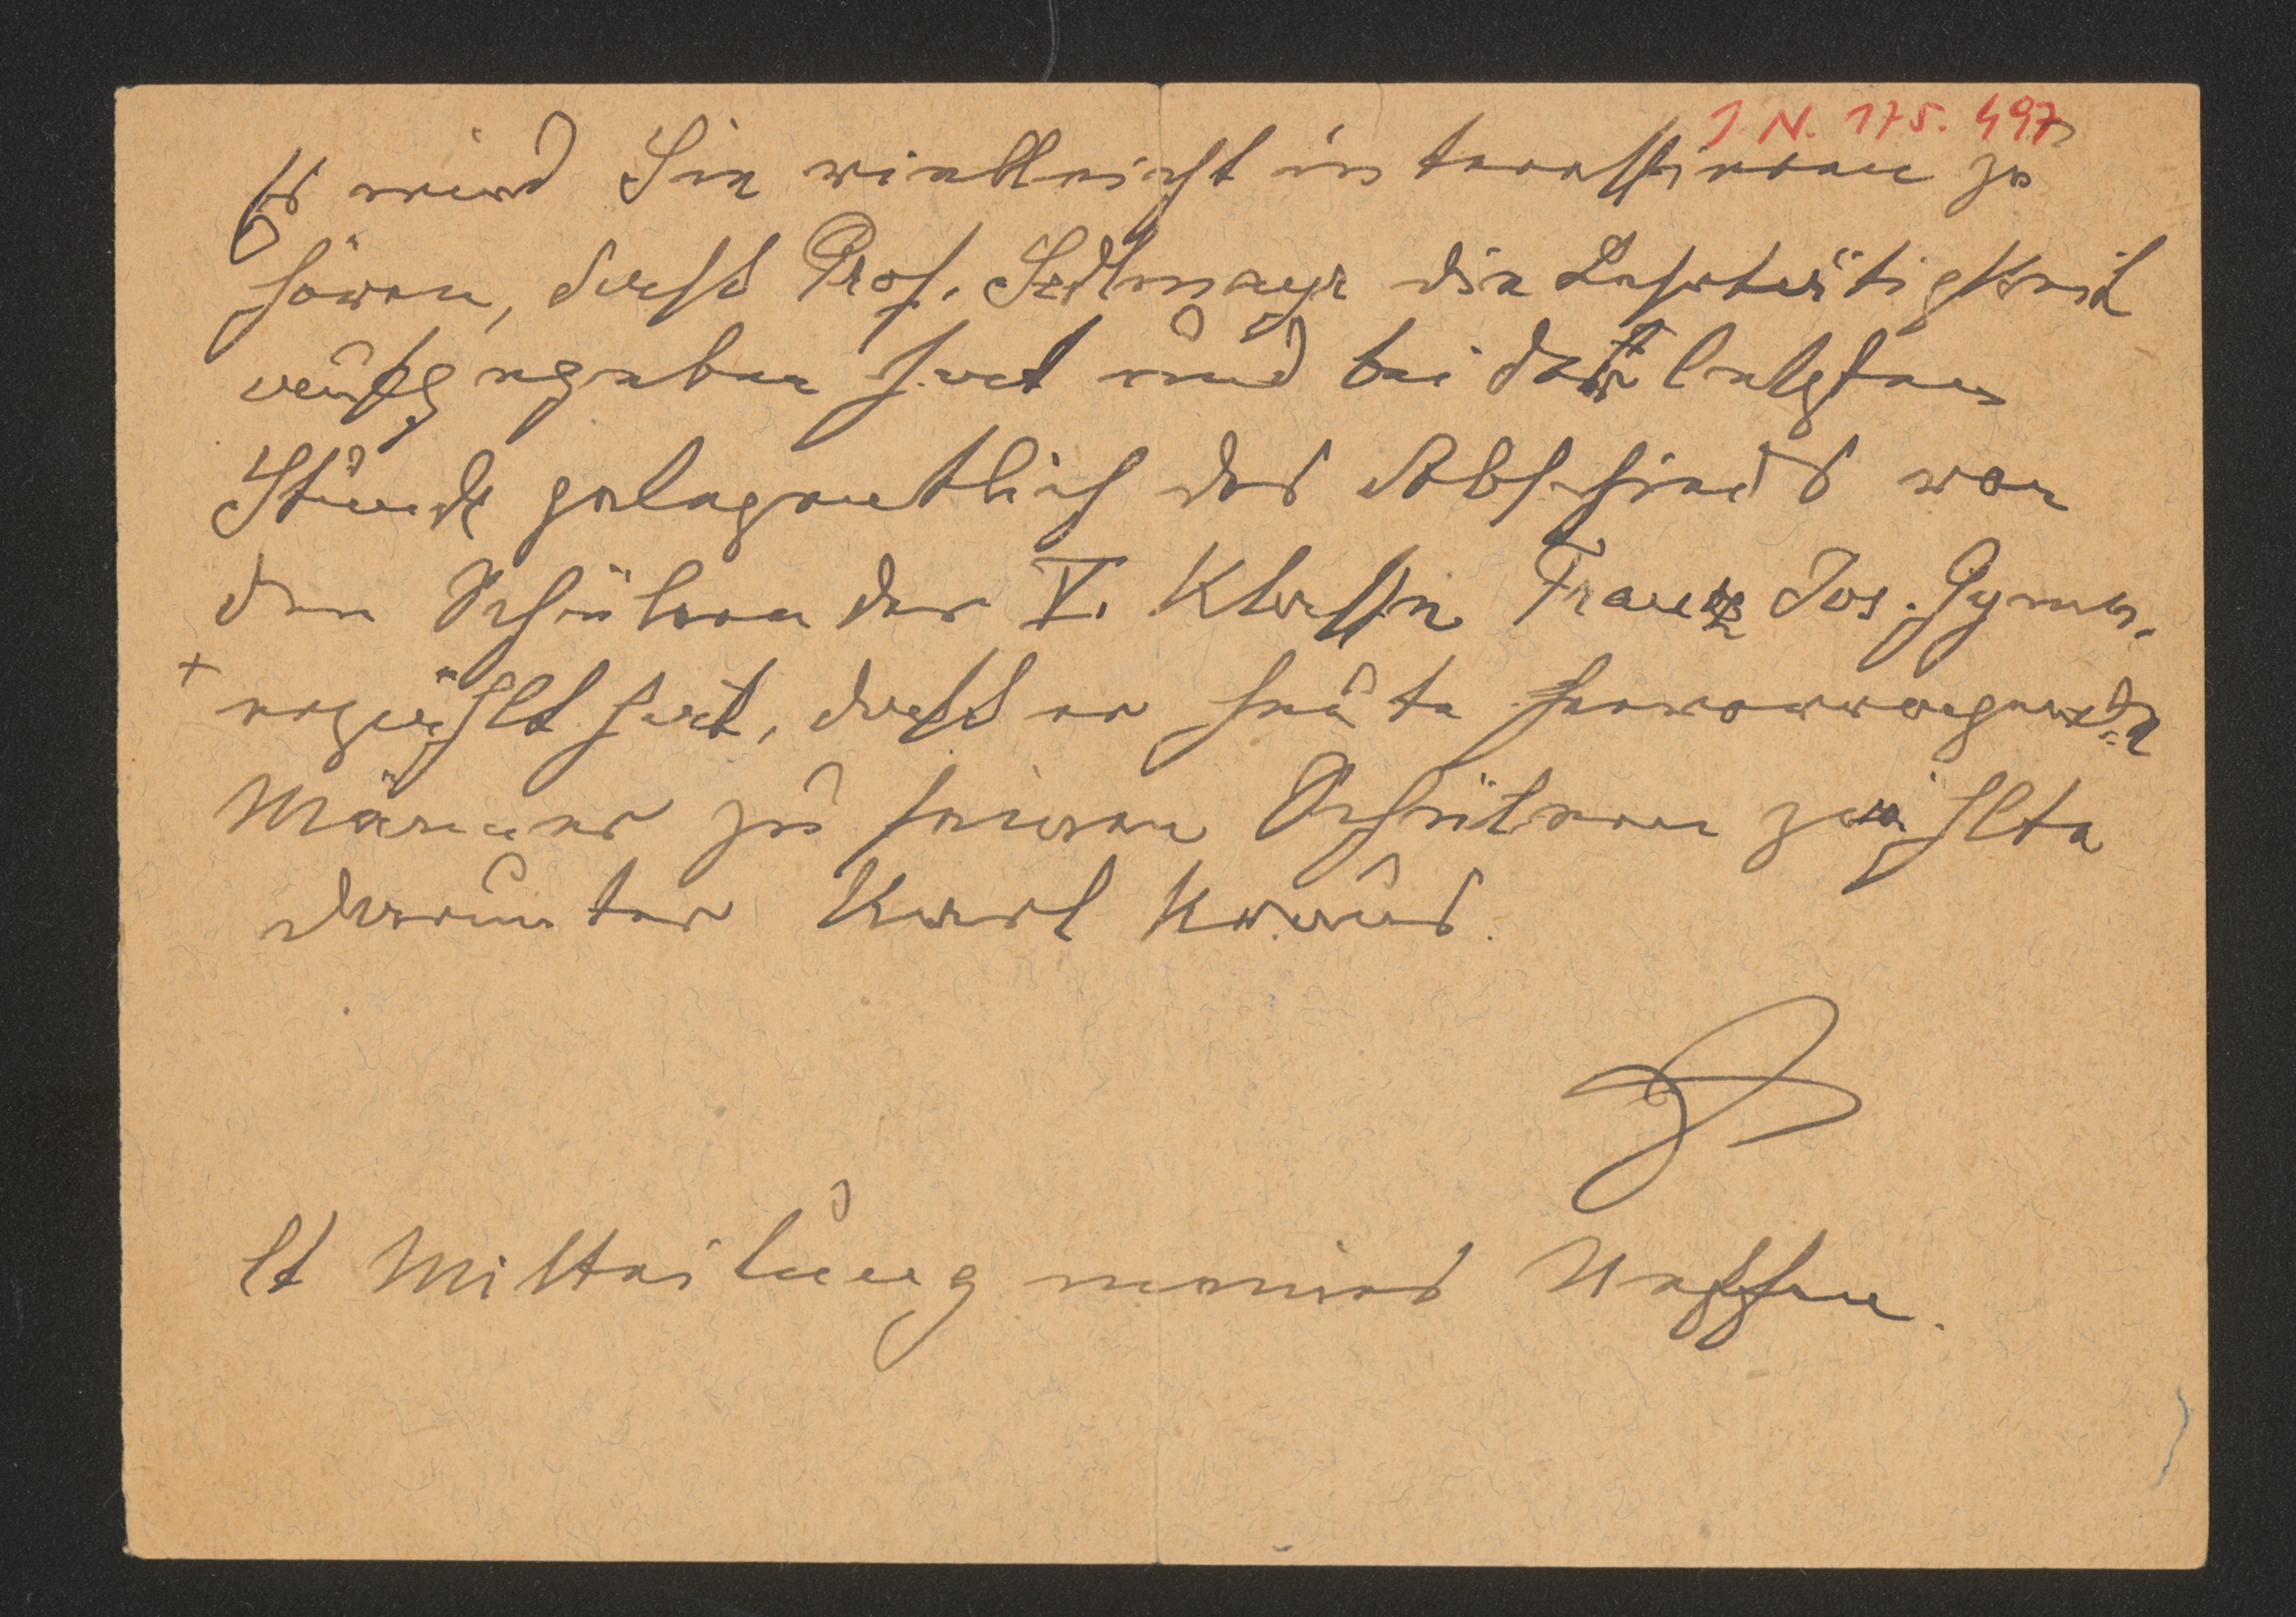 I. N. 175.497
Es wird Sie vielleicht interessieren zu
hören, dass Prof. Sedlmayr die Lehrtätigkeit
aufgegeben hat und bei der letzten
Stunde gelegentlich des Abschieds von
den Schülern der V. Klasse Franz Jos. Gymn.
+ erzählt hat, dass er heute hervorragende
Männer zu seinen Schülern zählte
darunter Karl Kraus.
lt Mitteilung meines Neffen.